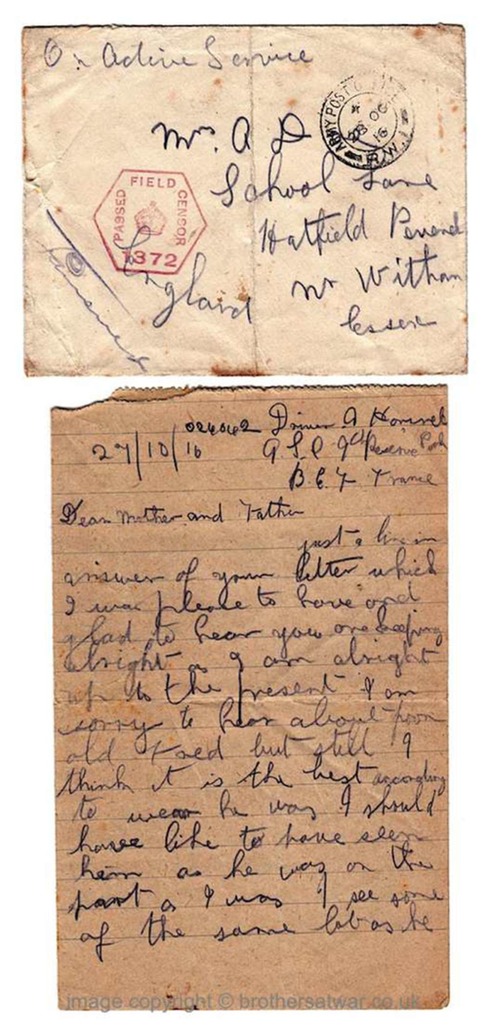 On Active Service
ARMY POST OFFICE
28 OC
16
R.W.1
Mrs A D
School Lane
Hatfield Peverel
Nr Witham
Essex
England
PASSED FIELD CENSOR
1372
024042 Driver A
27/10/16 A S C Reserve Park
B.E.F France
Dear Mother and Father
just a line in
answer of your letter which
I was please to have and
glad to hear you are keeping
alright as I am alright
up to the present I am
sorry to hear about poor
old Fred but still I
think it is the best according
to he was I should
have like to have seen
him as he was on the
part as I was I see some
of the same lot as he
image copyright © brothersatwar.co.uk